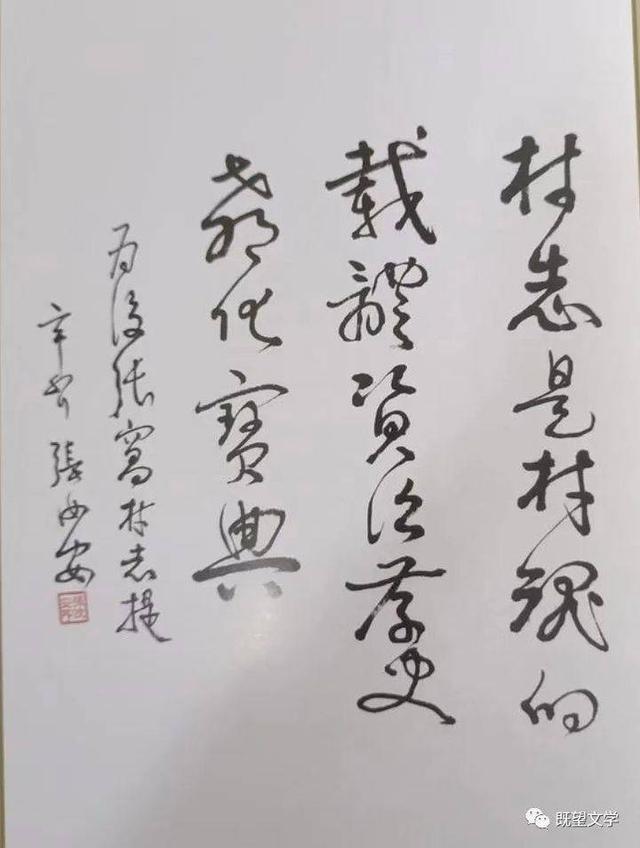 村志是村魂的
載體資治存史
教化寶典
为後張窩村志提
辛丑 張安
既望文学